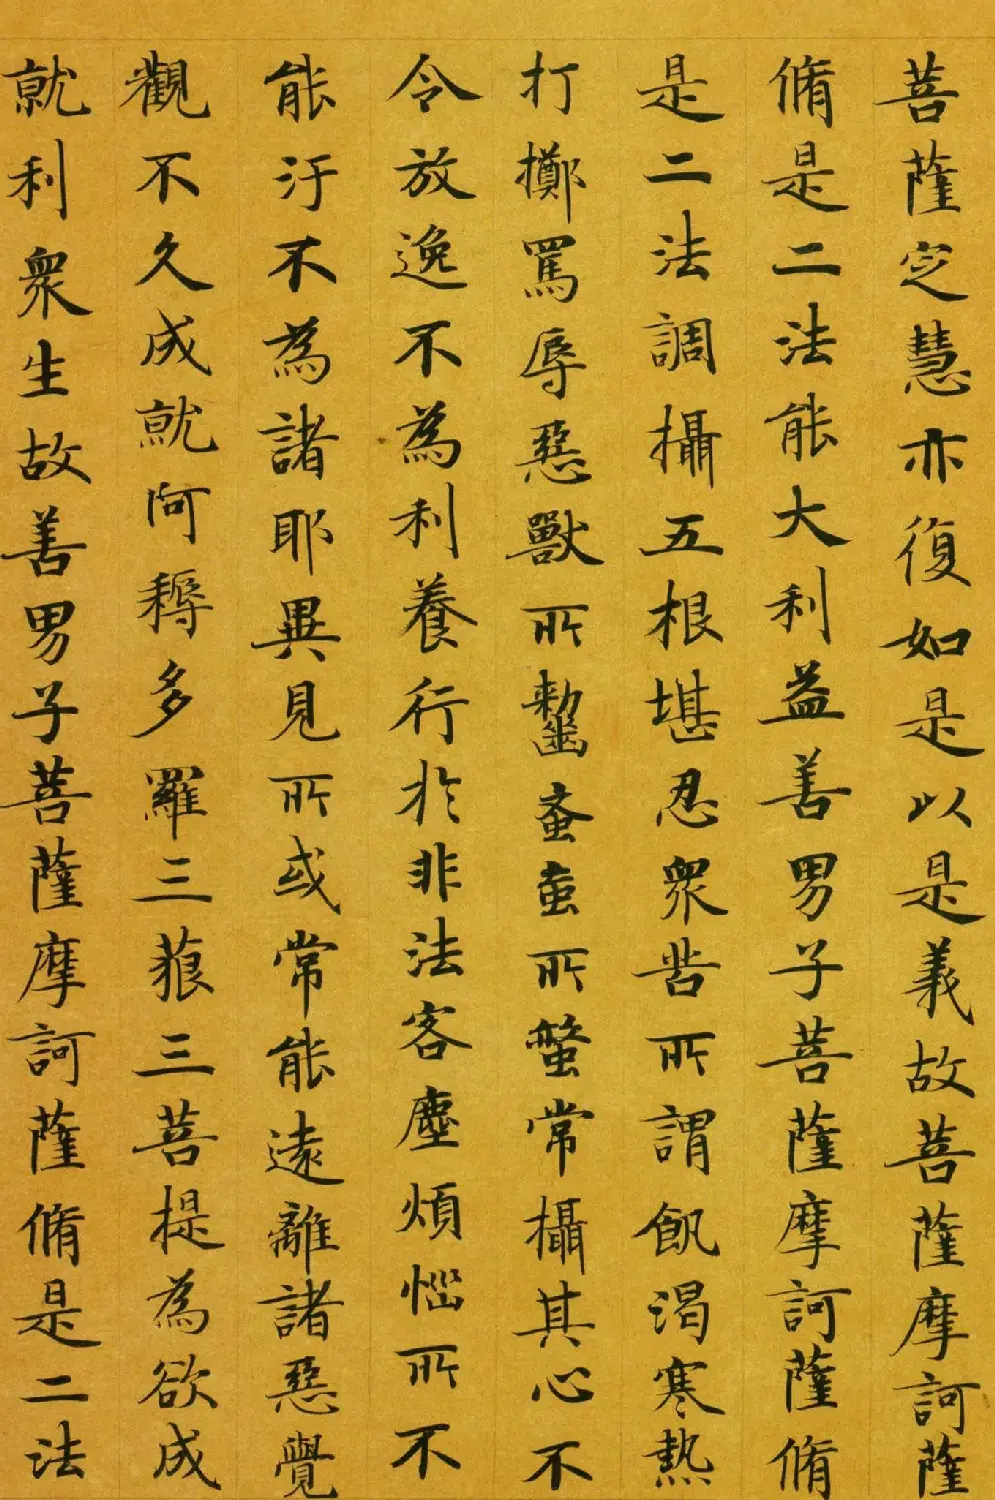 菩薩定慧亦復如是以是義故菩薩摩訶薩
脩是二法能大利益善男子菩薩摩訶薩脩
是二法調攝五根堪忍衆苦所謂飢渴寒熱
打擲罵辱惡獸所齧蚤䖟所螫常攝其心不
令放逸不為利養行於非法客塵煩惱所不
能汙不為諸耶異見所或常能遠離諸惡覺
觀不久成就阿耨多羅三藐三菩提為欲成
就利衆生故善男子菩薩摩訶薩脩是二法